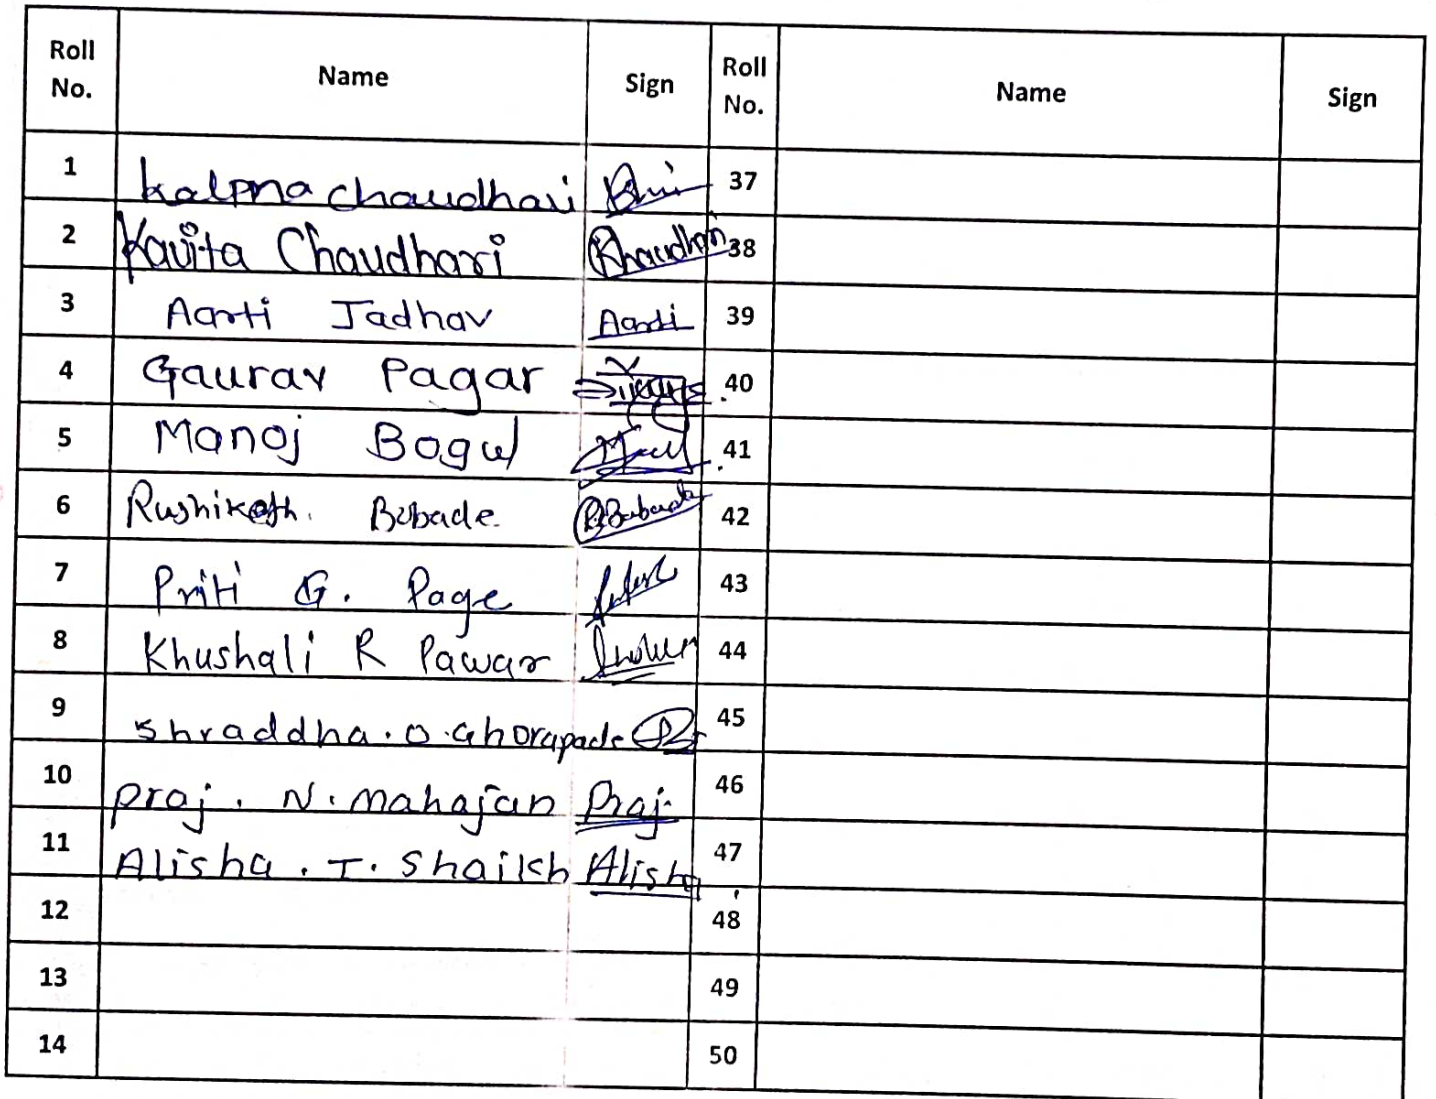 Roll No. Name Sign Roll No. Name Sign
1 Kalpna chaudhari 37
2 Kavita Chaudhari Khaudhari 38
3 Aarti Jadhav Aarti 39
4 Gaurav Pagar 40
5 Manoj Bagul 41
6 Rushikesh. Babade. RBabade 42
7 Priti G. Page 43
8 Khushali R Pawar 44
9 Shraddha. O. Ghorapade 45
10 Praj. N. mahajan Praj. 46
11 Alisha. I. Shaikh Alisha 47
12 48
13 49
14 50